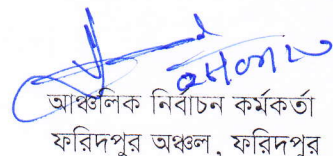 আঞ্চলিক নির্বাচন কর্মকর্তা
ফরিদপুর অঞ্চল, ফরিদপুর